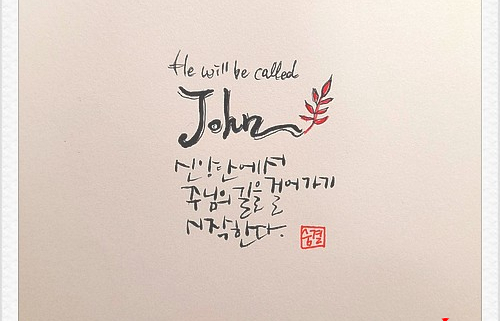 He will be called
John
주님의 길을 걸어가기
시작한다.
숨결